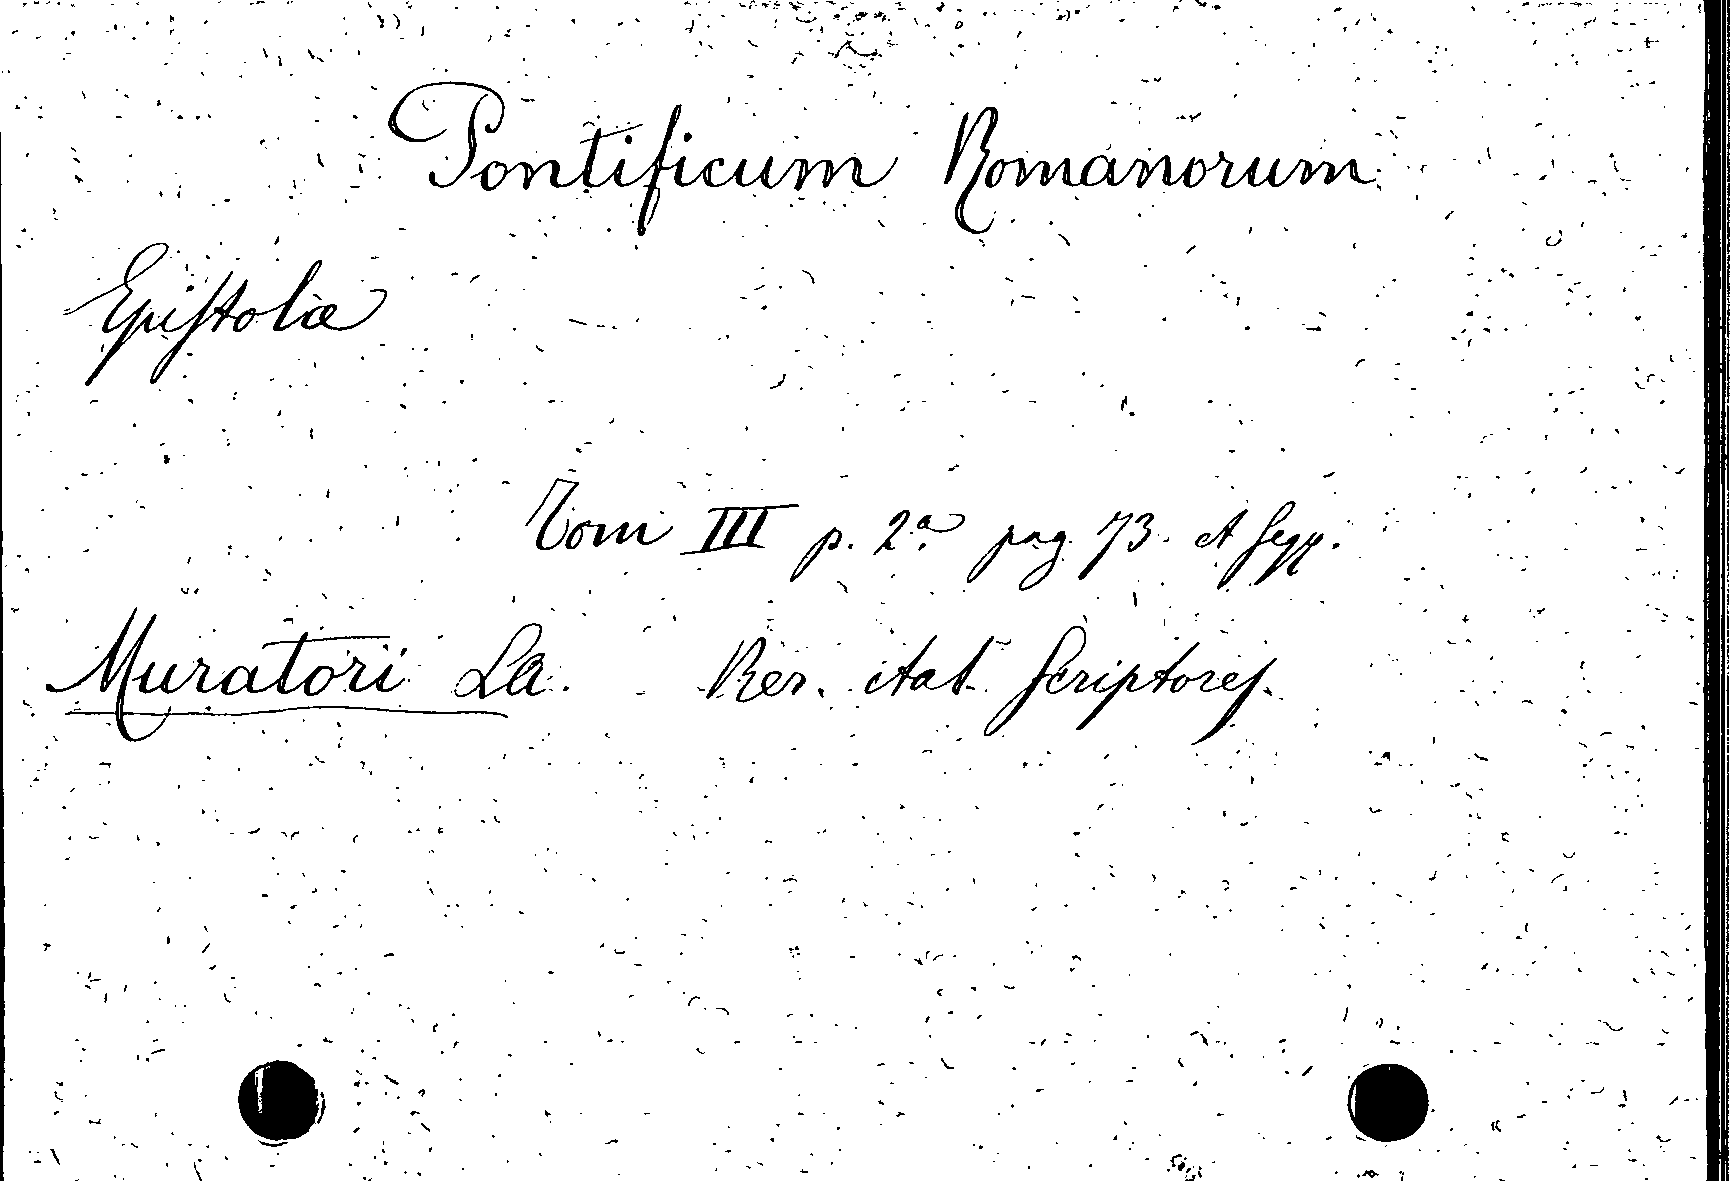 Pontificum Romanorum
Epistolæ
Tom III p. 2ª pag. 73. et seqq.
Muratori La. Rer. ital. Scriptores.